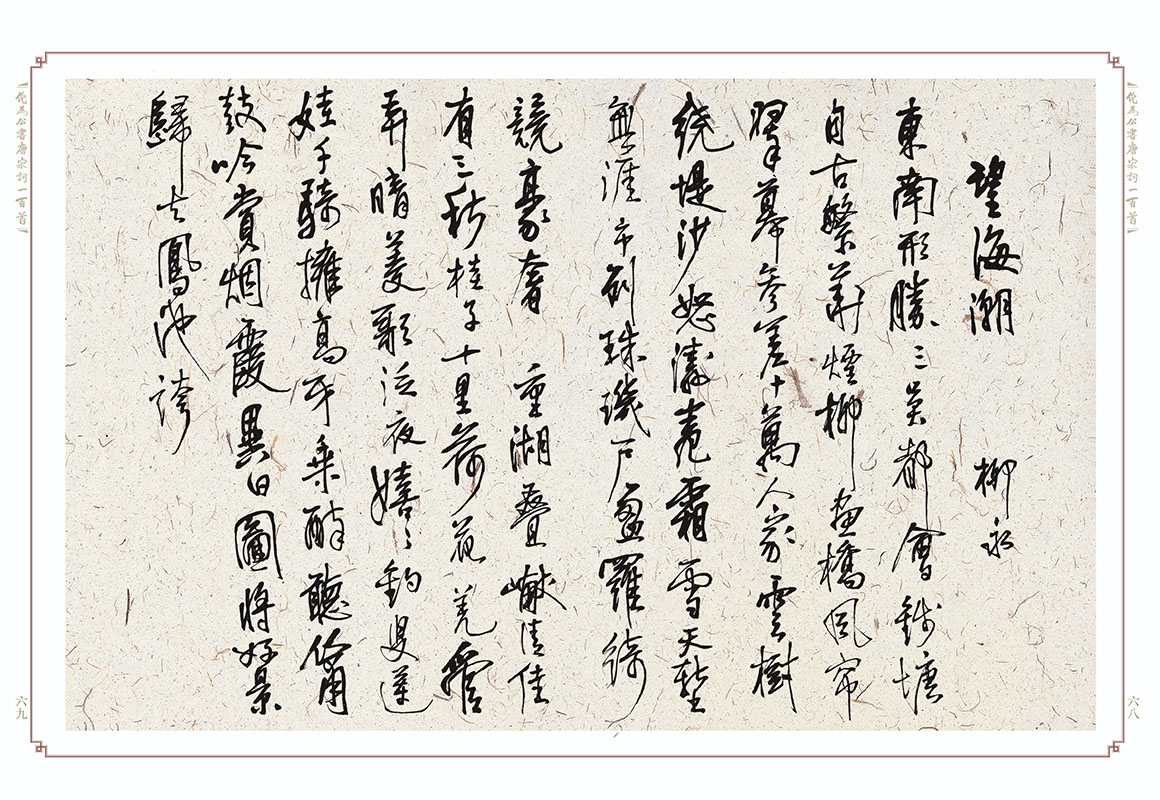 倪为公書唐宋詞一百首
望海潮 柳永
東南形勝三吳都會錢塘
自古繁華煙柳畫橋風帘
翠幕參差十萬人家雲樹
繞堤沙怒濤卷霜雪天塹
無涯市列珠璣户盈羅綺
競豪奢 重湖叠巘清佳
有三秋桂子十里荷花羌管
弄晴菱歌泛夜嬉々釣叟蓮
娃千騎擁高牙乘醉聽簫
鼓吟賞烟霞異日圖將好景
歸去鳳池誇
六八
倪为公書唐宋詞一百首
六九